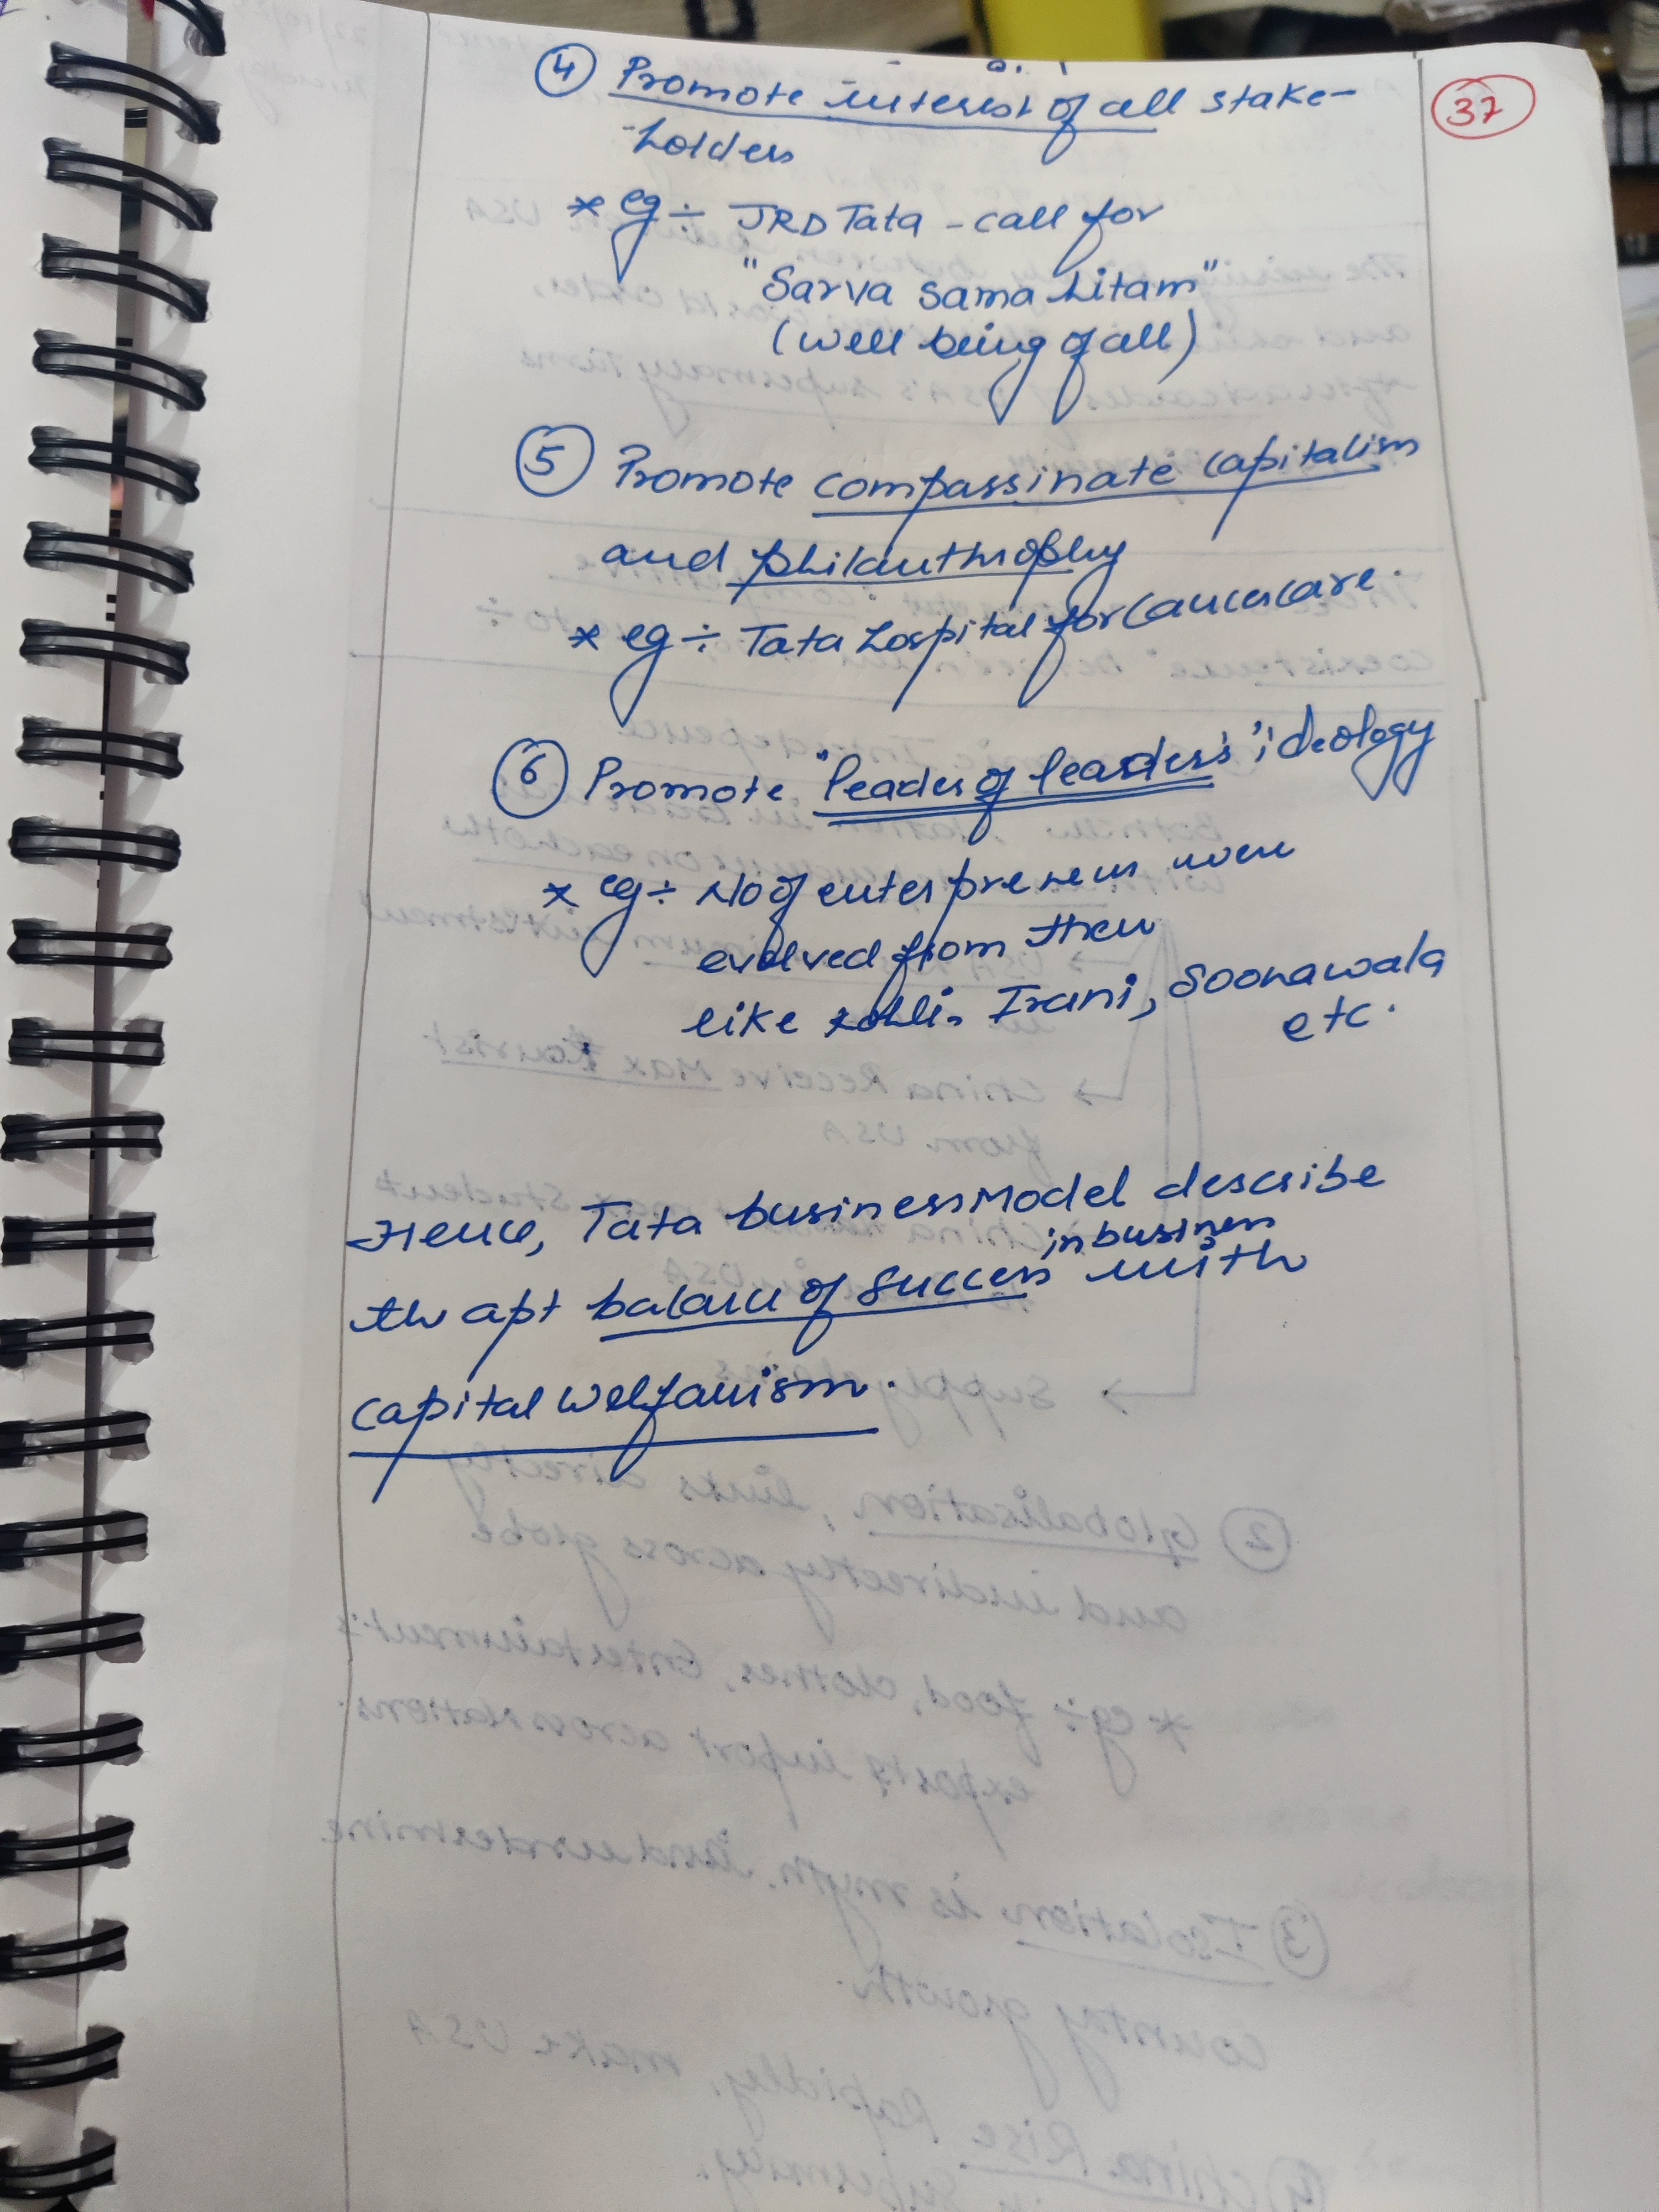 37
④ Promote interest of all stake-
-holders
* eg ÷ JRD Tata - call for
"Sarva sama hitam"
(well being of all)
⑤ Promote compassinate capitalism
and philanthrophy
* eg ÷ Tata hospital for cancer care.
⑥ Promote "leader of leaders" ideology
* eg ÷ No of enterpreneur were
evolved from them
like Kohli, Irani, Soonawala
etc.
Hence, Tata business Model describe
in business
the apt balance of success with
capital welfarism.